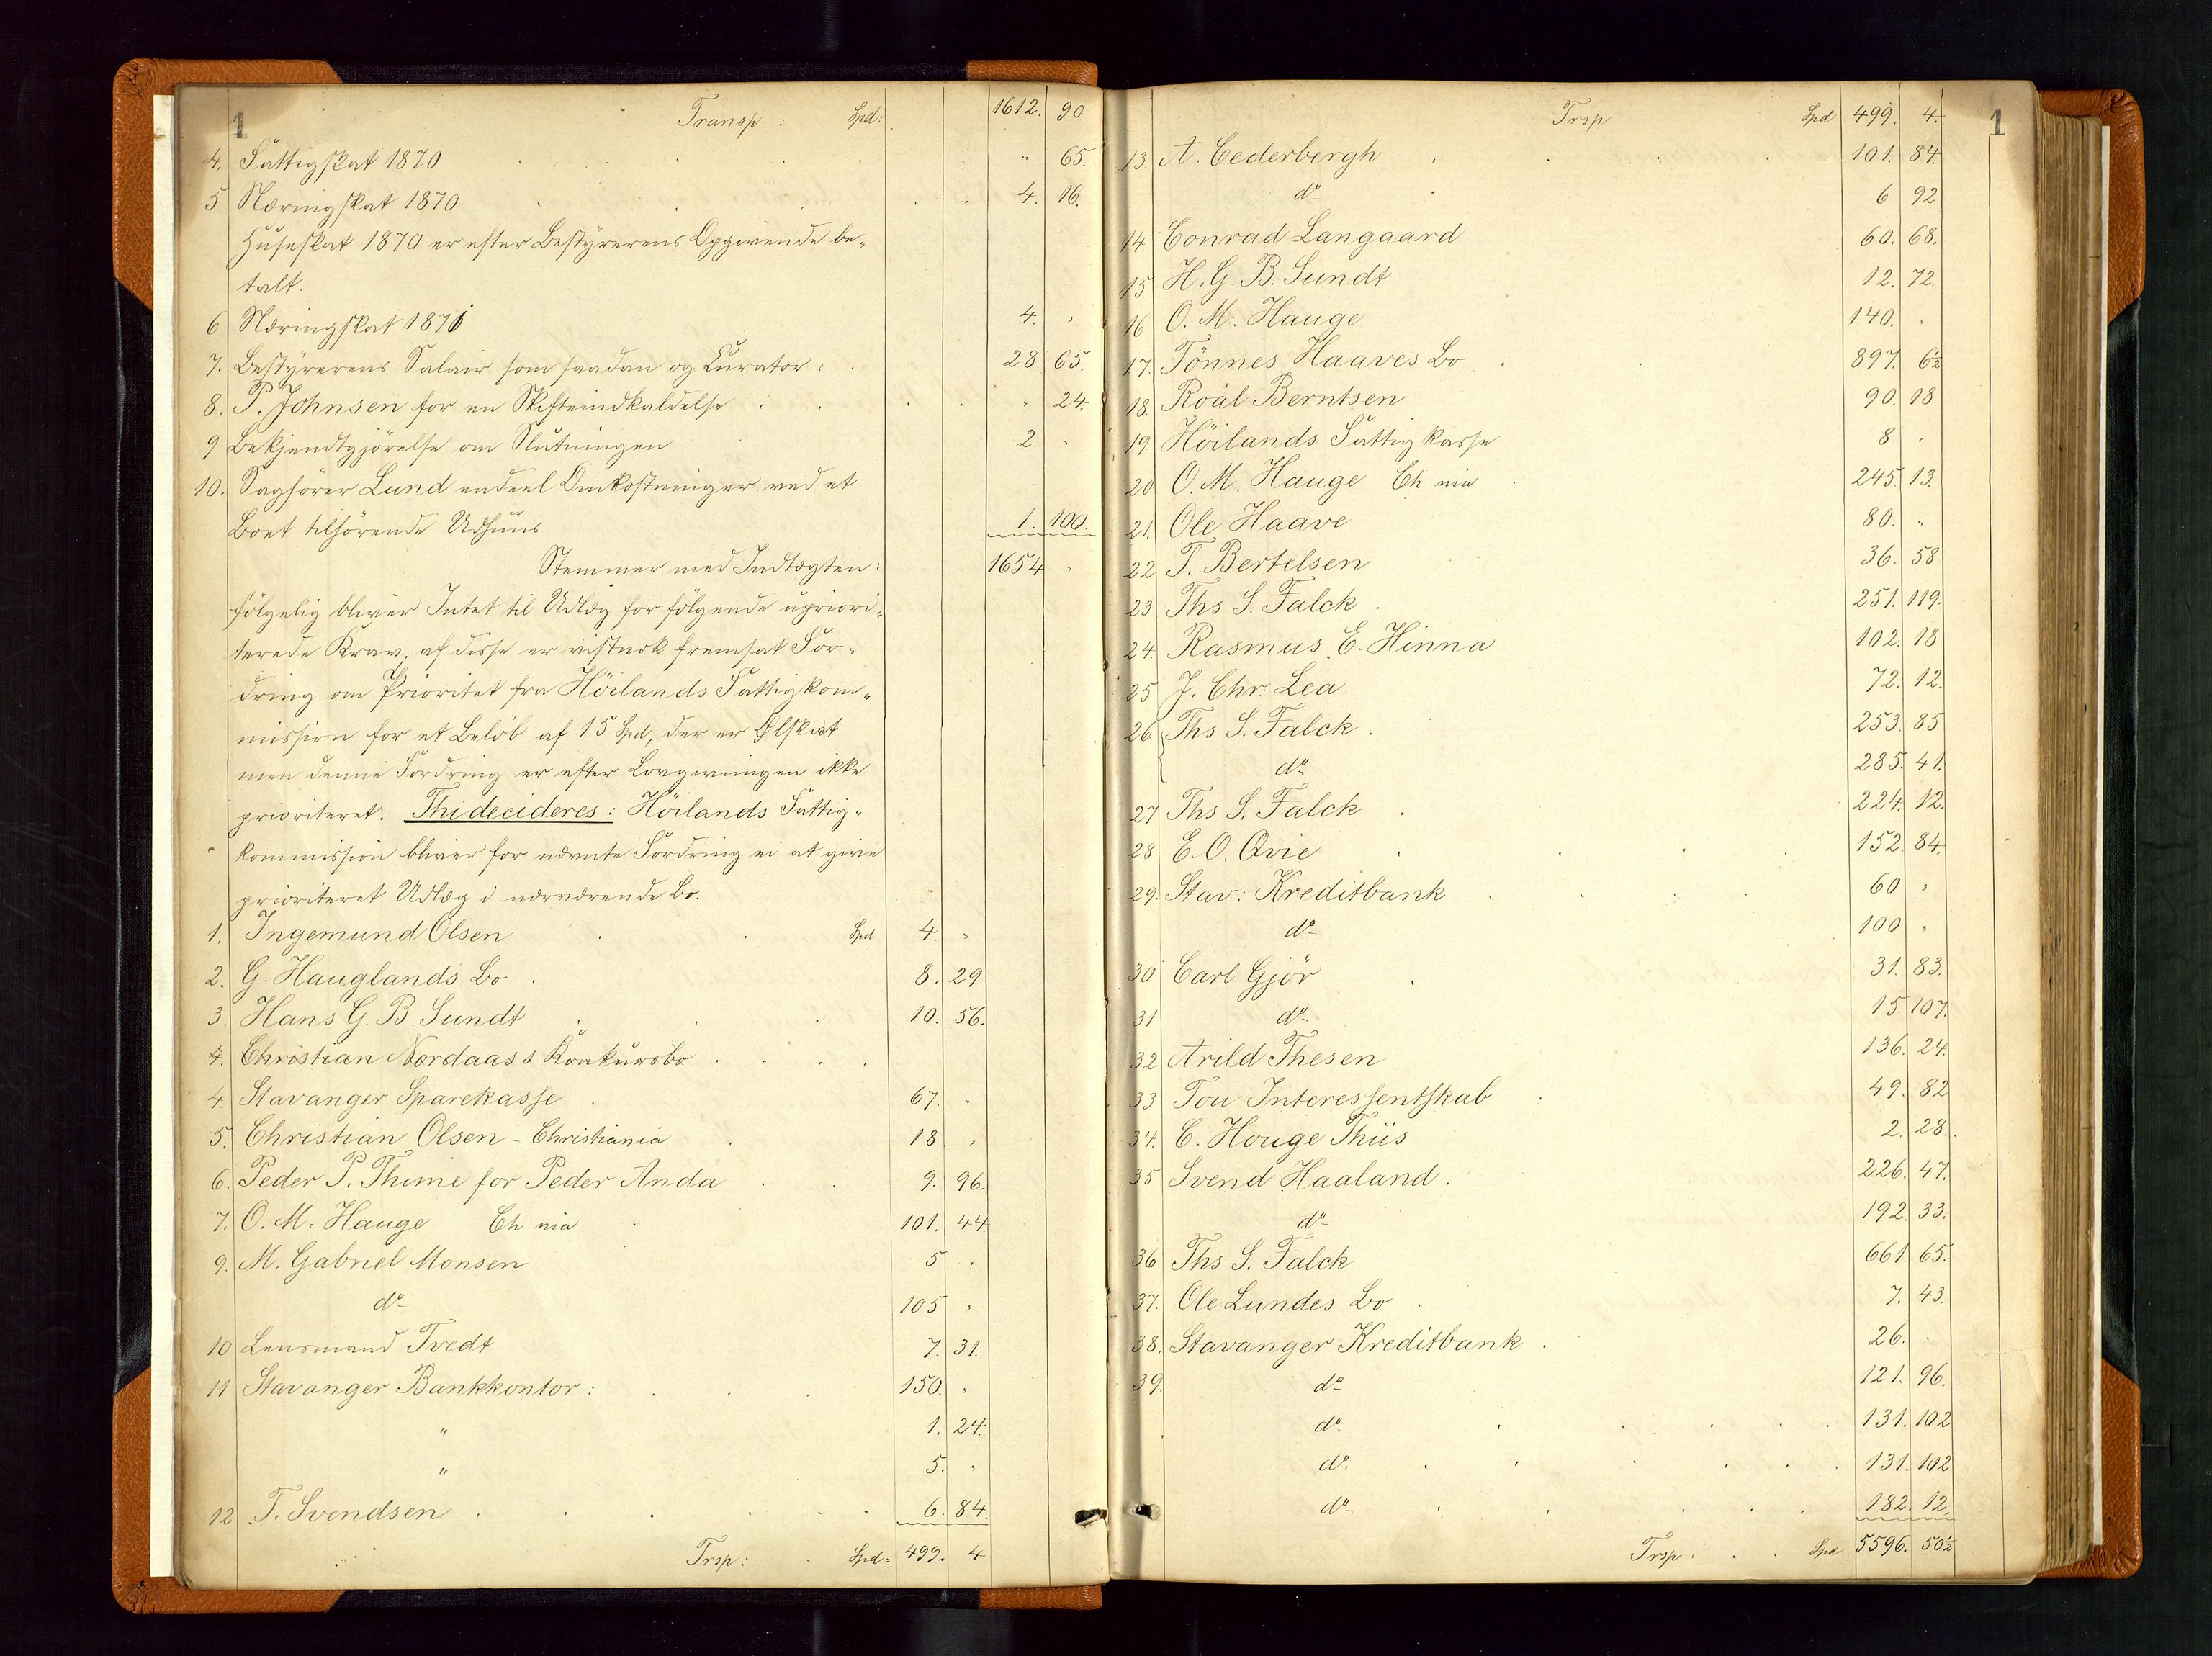 1
Transp: Spd: 1612. 90
4. Fattigskat 1870 " 65.
5 Næringskat 1870 4. 16.
Huseskat 1870 er efter Bestyrerens Opgivende be-
talt.
6 Næringskat 1871 4. "
7. Bestyrerens Salair som saadan og Kurator: 28 65.
8. P. Johnsen for en Skifteindkaldelse " 24.
9 Bekjendtgjörelse om Slutningen 2. "
10. Sagförer Lund endeel Omkostninger ved et
Boet tilhörende Udhuus 1. 100.
Stemmer med Indtægten: 1654 "
fölgelig bliver Intet til Udlæg for fölgende upriori-
terede Krav, af disse er vistnok fremsat For-
dring om Prioritet fra Höilands Fattigkom-
mission for et Belöb af 15 Spd, der er Ølskat
men denne Fordring er efter Lovgivningen ikke
prioriteret. Thi decideres: Höilands Fattig-
kommission bliver for nævnte Fordring ei at give
prioriteret Udlæg i nærværende Bo.
1. Ingemund Olsen Spd 4. "
2. G. Hauglands Bo 8. 29
3. Hans G. B. Sundt 10. 56.
4. Christian Nordaas's Konkursbo
4. Stavanger Sparekasse 67. "
5. Christian Olsen - Christiania 18. "
6. Peder P. Thime for Peder Anda 9. 96.
7. O. M. Hauge Ch nia 101. 44.
9. M. Gabriel Monsen 5 "
do 105 "
10 Lensmand Tvedt 7. 31.
11 Stavanger Bankkontor: 150. "
" 1. 24.
" 5. "
12 T. Svendsen 6. 84.
Trsp: Spd: 499. 4
1
Trsp Spd 499. 4.
13. A. Cederbergh 101. 84.
do 6 92
14. Conrad Langaard 60. 68.
15 H. G. B. Sundt 12. 72.
16 O. M. Hauge 140. "
17. Tönnes Haaves Bo 897. 6½
18. Roäl Berntsen 90. 18
19. Höilands Fattigkasse 8 "
20 O. M. Hauge Ch nia 245. 13.
21. Ole Haave 80. "
22 T. Bertelsen 36. 58
23 Ths S. Falck 251. 119.
24. Rasmus E. Hinna 102. 18
25 J. Chr. Lea 72. 12.
26 Ths S. Falck 253. 85
do 285. 41.
27 Ths S. Falck 224. 12.
28 E. O. Qvie 152 84.
29. Stav: Kreditbank 60 "
do 100 "
30 Carl Gjör 31. 83.
31 do 15 107.
32 Arild Thesen 136. 24.
33 Tou Interessentskab 49. 82
34. C. Houge Thiis 2. 28.
35 Svend Haaland 226. 47.
do 192. 33.
36 Ths S. Falck 661. 65.
37. Ole Lundes Bo 7. 43.
38. Stavanger Kreditbank 26. "
39. do 121. 96.
do 131. 102
do 131. 102
do 182. 12.
Trsp Spd 5596. 50½